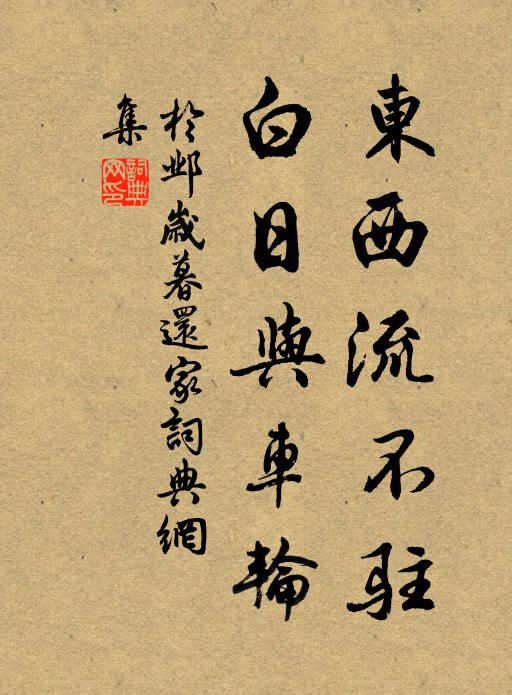 東西流不駐
白日與車輪
於鄴歲暮還家詞典網
集
詞典
网印